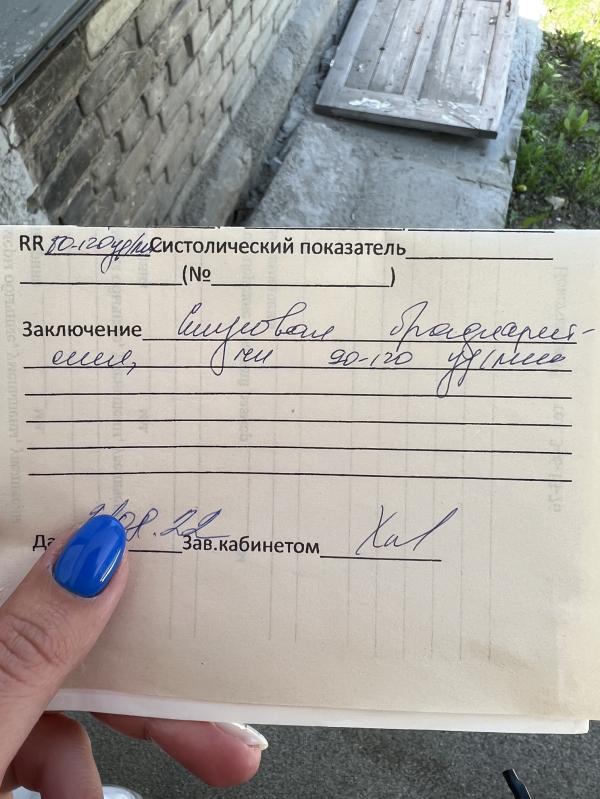 RR 90-120 уд/мин Систолический показатель
(№ )
Заключение Синусовая брадиарит-
мия, чсс 90-120 уд/мин
Да 08.22 Зав.кабинетом